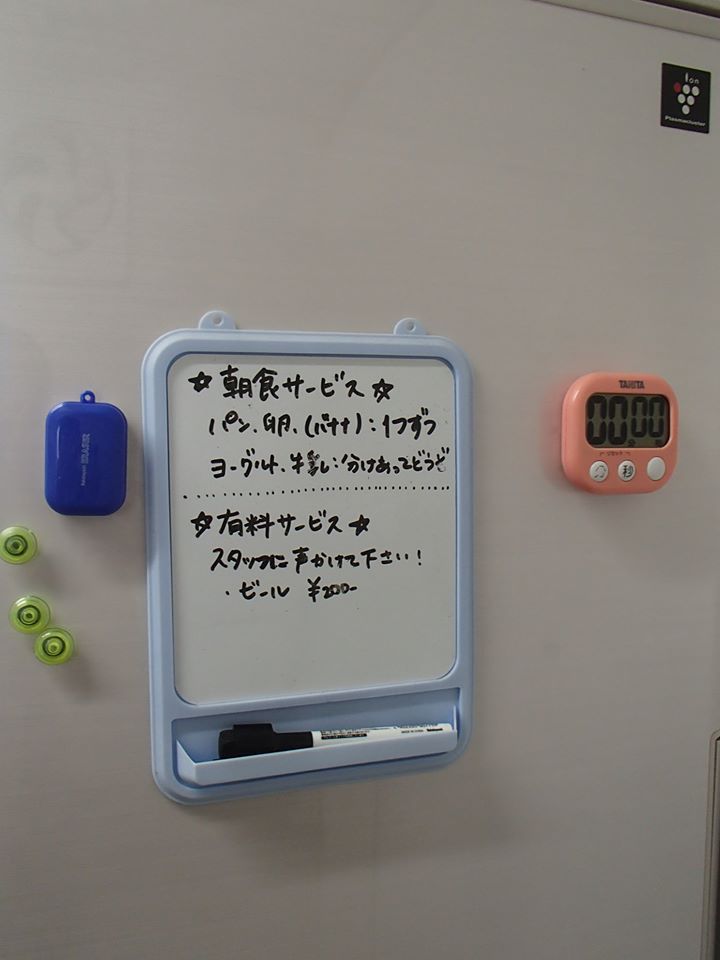 Ion
Plasmacluster
☆朝食サービス☆
パン、卵、(バナナ):1つずつ
ヨーグルト、牛乳:分けあってどうぞ
☆有料サービス☆
スタッフに声かけて下さい!
・ビール ¥200-
TANITA
00 00
分 秒
ERASER